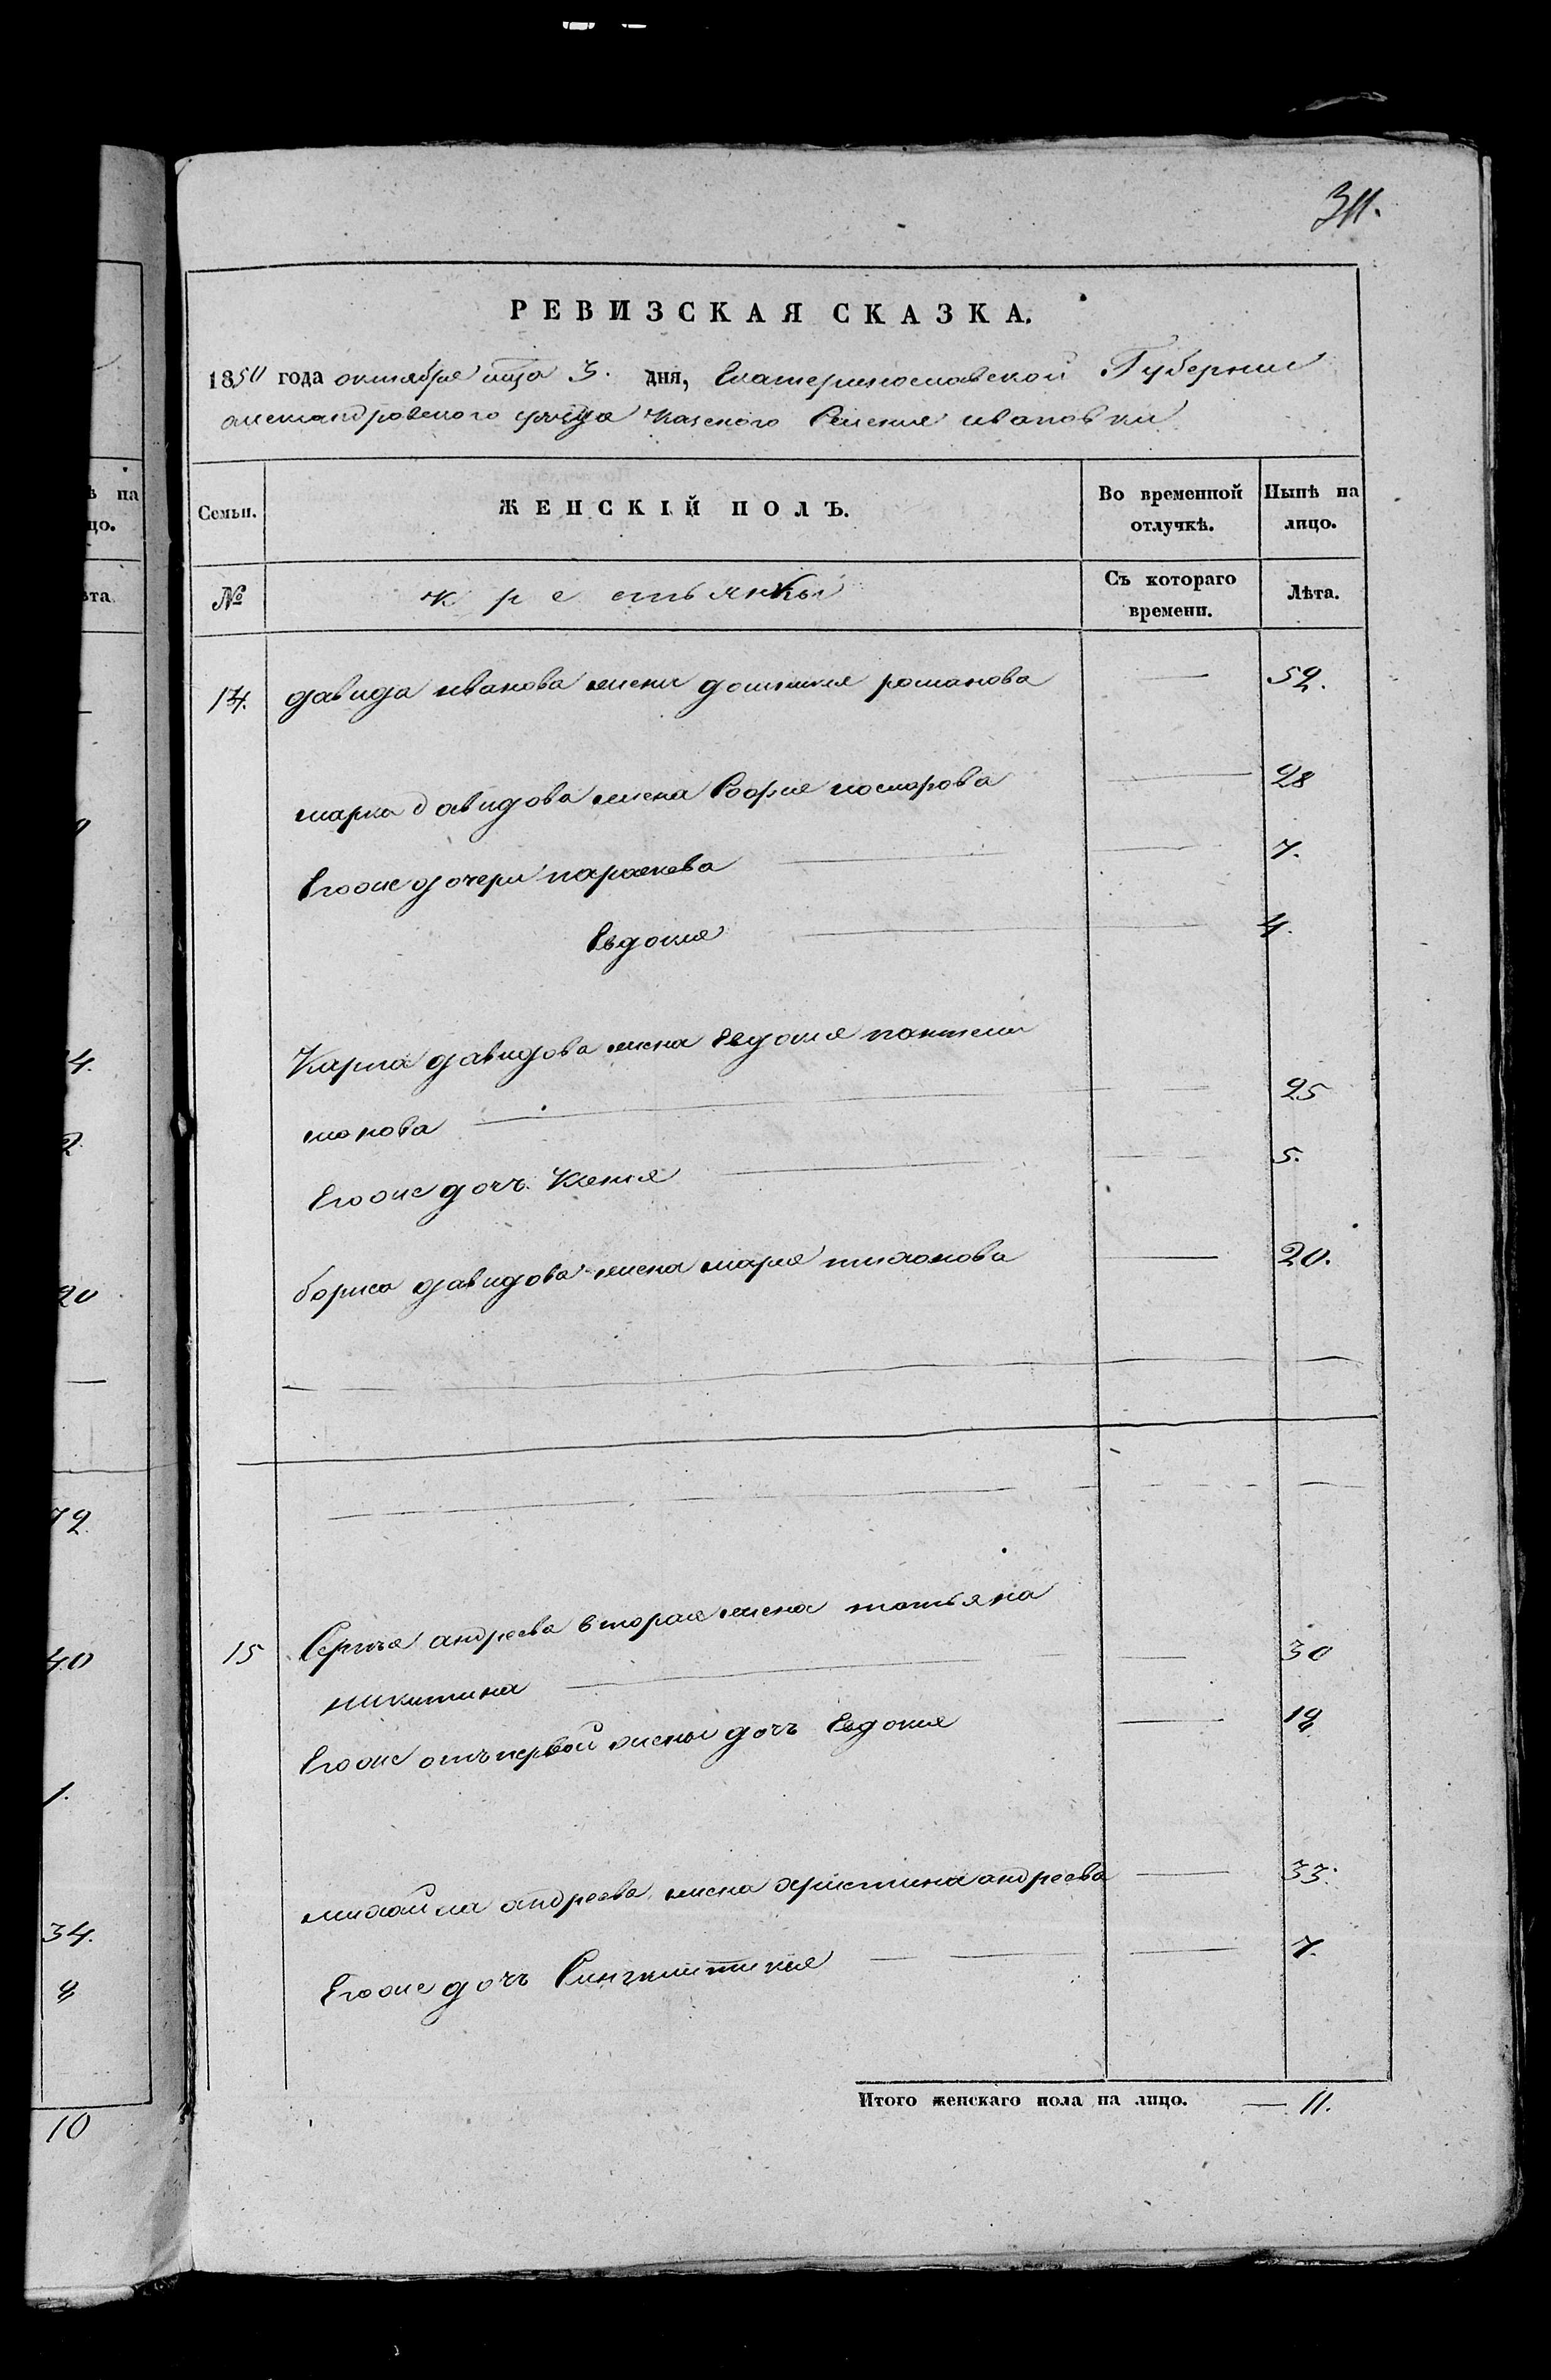 311.
РЕВИЗСКАЯ СКАЗКА.
1850 года октября мца 3. дня, Екатеринославской Губернии
александровского уезда Казеного Селения ивановки
Семьи. ЖЕНСКІЙ ПОЛЪ. Во временной отлучкѣ. Нынѣ на лицо.
№ крестьянкы Съ котораго времени. Лѣта.
14. давида иванова жени домникия романова — 52.
марка давидова жена София носкорова — 28
Егоже дочери параскева — 7.
Евдокия — 4.
Карпа давидова жена Евдокия пантели
монова — 25
Егоже дочъ Ксения — 5.
бориса давидова жена мария тихонова — 20.
15 Сергея андреева вторая жена татьяна
никитина — 30
Егоже отъ первой жены дочъ Евдокия — 12
михайила андреева жена христина андреева — 33.
Егоже дочъ Синклитикия — 7.
Итого женскаго пола на лицо. — 11.
ѣ на
цо.
ѣта
4.
2
20
72
40
1.
34.
8
10